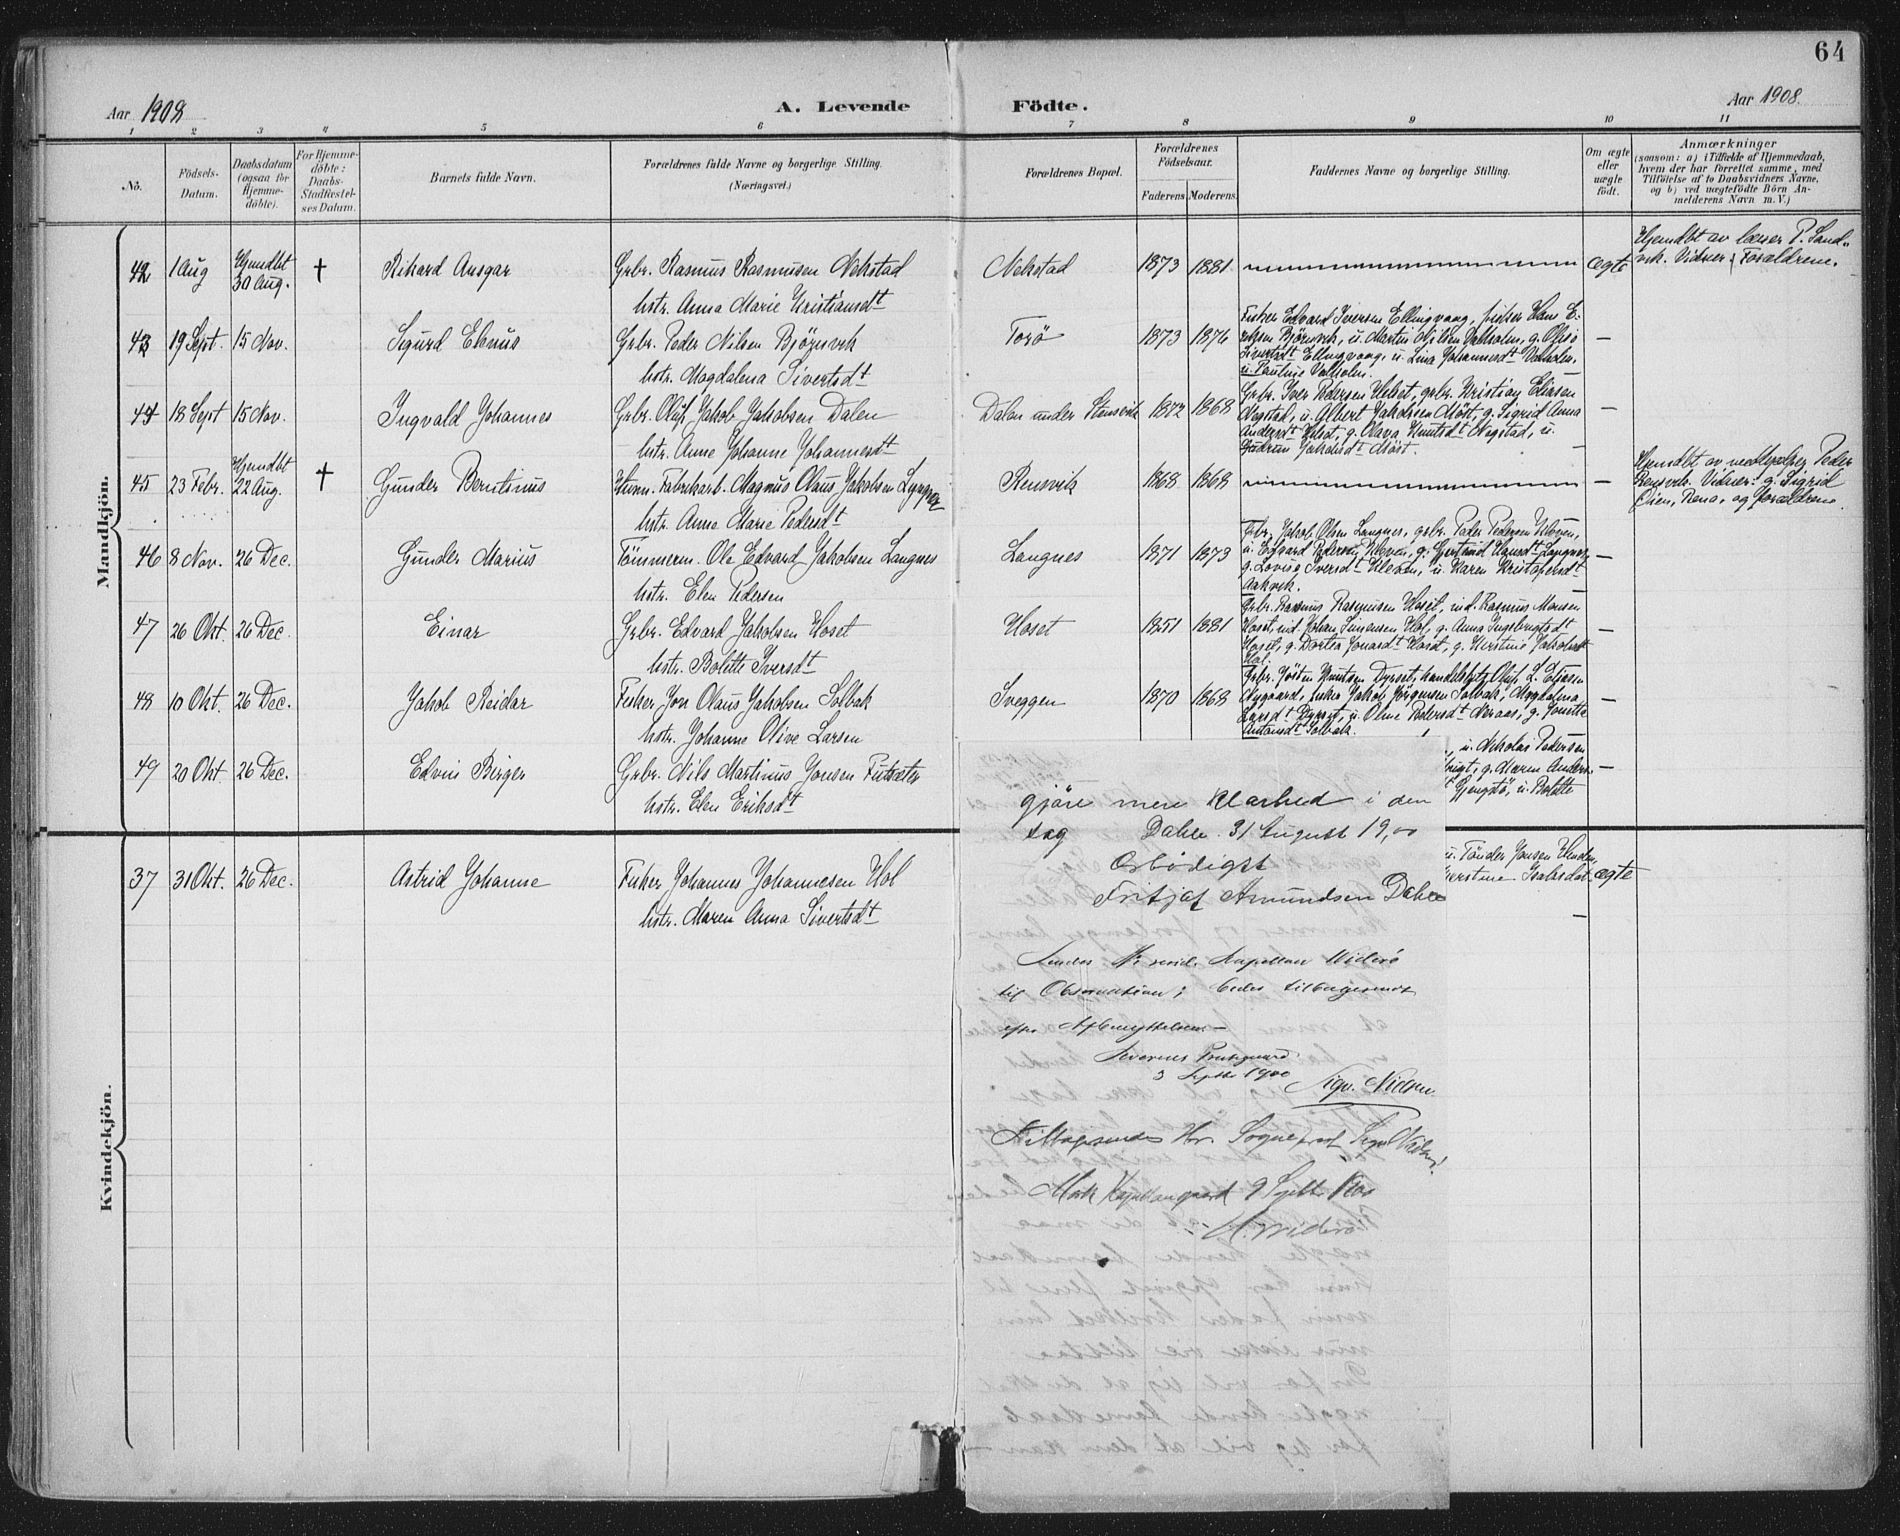 64
Aar 1908
A. Levende Födte.
Aar 1908.
1 2 3 4 5 6 7 8 9 10 11
No.
Födsels-
Datum.
Daabsdatum
(ogsaa for
Hjemme-
döbte).
For Hjemme-
döbte:
Daabs-
Stadfæstel-
ses Datum.
Barnets fulde Navn.
Forældrenes fulde Navne og borgerlige Stilling.
(Næringsvei.)
Forældrenes Bopæl.
Forældrenes
Födselsaar.
Faderens Moderens.
Faddernes Navne og borgerlige Stilling.
Om ægte
eller
uægte
födt.
Anmærkninger
(saasom: a) i Tilfælde af Hjemmedaab,
hvem der har forrettet samme, med
Tilföielse af to Daabsvidners Navne,
og b) ved uægtefödte Börn An-
melderens Navn m. V.)
Mandkjön.
42 1 Aug Hjemdbt 30 Aug. † Rikard Ansgar Grbr. Rasmus Rasmusen Nekstad
hstr. Anna Marie Kristiansdt
Nekstad 1873 1881 ægte
Hjemdbt av lærer P. Sand-
vik. Vidner: Forældrene.
43 19 Sept. 15 Nov. Sigurd Elenus Grbr. Peder Nilsen Bjørnvik
hstr. Magdalena Sivertsdt
Torö 1873 1876 —
Fisker Edvard Iversen Ellingvaag, fisker Hans E-
riksen Bjørnvik, u. Martin Nilsen Valholm, g. Olise
Sivertsdt Ellingvaag, u. Lina Johannesdt Valholm,
u. Pauline Valholm.
44 18 Sept 15 Nov. Ingvald Johannes Grbr. Oluf Jakob Jakobsen Dalen
hstr. Anne Johanne Johannesdt
Dalen under Stensvik 1872 1868 —
Grbr. Iver Pedersen Helset, grbr. Kristian Eliasen
Nogstad, u. Albert Jakobsen Möst, g. Sigrid Anna
Andersdt Helset, g. Olava Knutsdt Nogstad, u.
Gudrun Jakobsdt Möst.
45 23 Febr. Hjemdbt 22 Aug. † Gunder Berntinus Husm. Fabrikarb. Magnus Olaus Jakobsen
hstr. Anne Marie Pedersdt
Rensvik 1868 1868 —
Hjemdbt av Peder
Rensvik. Vidner: g. Sigrid
Öien, Rena, og forældrene.
46 8 Nov. 26 Dec. Gunder Marius Tömmerm. Ole Edvard Jakobsen Langnes
hstr. Elen Pedersen
Langnes 1871 1873 —
Grbr. Jakob Olsen Langnes, grbr. Peder Pedersen Kleven,
u. Edvard Pedersen Kleven, g. Gjertrud Hansdt Langnes,
g. Lovise Iversdt Kleven, u. Karen Kristofersdt
Aakvik.
47 26 Okt. 26 Dec. Einar Grbr. Edvard Jakobsen Hoset
hstr. Bolette Iversdt
Hoset 1851 1881 —
Grbr. Rasmus Rasmusen Hoset, ind. Rasmus Monsen
Hoset, ind. Johan Simensen Hol, g. Anna Ingebrigtsdt
Hoset, g. Dortea Jonasdt Hoset, g. Kirstine Jakobsdt
Hol.
48 10 Okt. 26 Dec. Jakob Reidar Fisker Jon Olaus Jakobsen Solbak
hstr. Johanne Olive Larsen
Sveggen 1870 1868 —
Grbr. Jösten Knutsen Dyrset, handelsbtj. Oluf L. Eliasen
Nygaard, fisker Jakob Jörgensen Solbak, Magdalena
Larsdt Dyrset, u. Oline Pedersdt Neraas, g. Jonetta
Antonsdt Solbak.
49 20 Okt 26 Dec. Edvin Birger Grbr. Nils Martinus Jonsen Futsæter
hstr. Elen Eriksdt
, u. Nikolas Pedersen
g. Maren Anders-
t Gjengstö, u. Bolette
—
Kvindekjön.
37 31 Okt. 26 Dec. Astrid Johanne Fisker Johannes Johannesen Hol
hstr. Maren Anna Sivertsdt
u. Tönder Jonsen
Kerstine Isaksdat ægte
gjöre mere klarhed i den
sag Dahle 31 August 19,00
Ærbödigst
Fritjof Amundsen Dahle
Sendes Hr. resid. Kapellan Widerö
til Observation; bedes tilbagesendt
efter Afbenyttelsen.—
Kvernes Præstegaard
3 Septbr 1900
Sigv. Nielsen.
Tilbagesendes Hr. Sogneprest Sigv Nielsen!
Kapellangaard 9 Septbr. 1900
A. Widerö